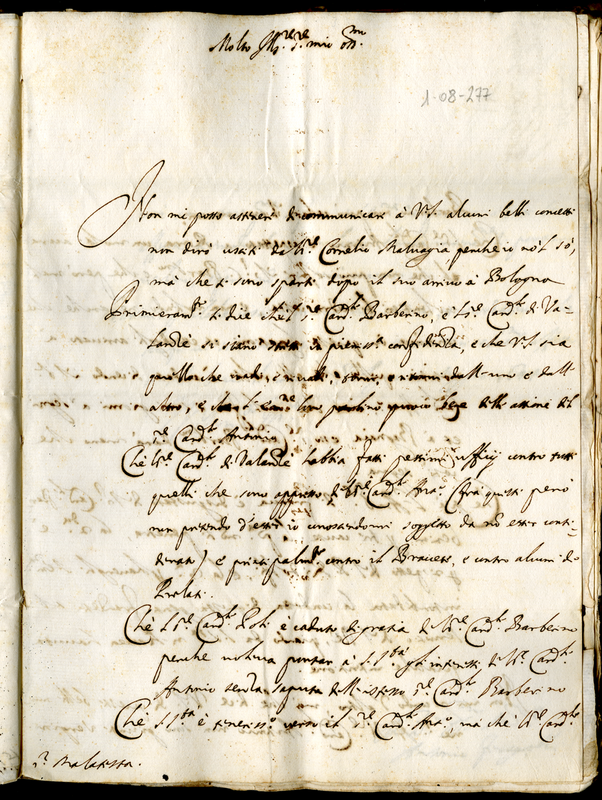 Molto Ill.re S.r mio oss.mo
1-08-277
Non mi posso astenere di communicare à V.S. alcuni belli concetti
non dirò usciti dal S.r Cornelio Maluagia perche io nol sò,
mà che si sono sparsi dopo il suo arriuo à Bologna
Primieram.te si dice che il S.r Card.le Barberino, e'l S.r Card.le di Va-
lanse si siano in confidenza, e che V.S. sia
quello che e dall uno e dall
altro, e che delle attioni del
S.r Card.le Antonio
Che'l S.r Card.le di Valanse habbia fatti pessimi uffitij contro tutti
quelli che sono appresso il S.r Card.le Ant.o (frà questi però
non pretendo d'esser io conoscendomi soggetto da nō esser consi-
derato) e principalm.te contro il Bracese, e contro alcuni de
Prelati.
Che'l S.r Card.le Poli è caduto di gratia del S.r Card.le Barberino
perche uoleua portar à S.S.tà gli interessi del S.r Card.le
Antonio senza saputa dell istesso S.r Card.le Barberino
Che S.S.tà è teneriss.o verso il S.r Card.le Ant.o, mà che'l S.r Card.le
S.r Malatesta.